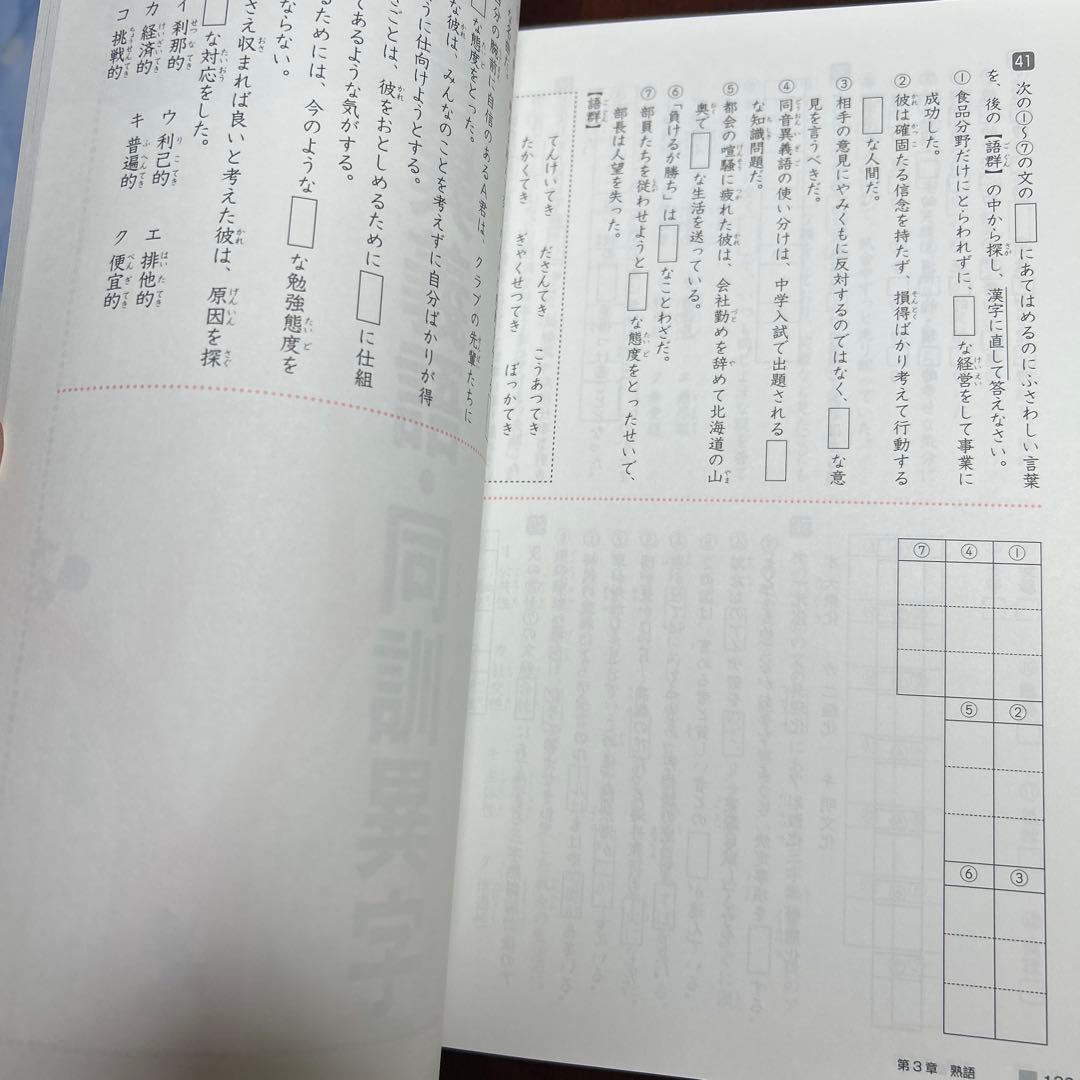 41 次の①〜⑦の文の□にあてはめるのにふさわしい言葉
を、後の【語群】の中から探し、漢字に直して答えなさい。
① 食品分野だけにとらわれずに、□な経営をして事業に
成功した。
② 彼は確固たる信念を持たず、損得ばかり考えて行動する
□な人間だ。
③ 相手の意見にやみくもに反対するのではなく、□な意
見を言うべきだ。
④ 同音異義語の使い分けは、中学入試で出題される□
な知識問題だ。
⑤ 都会の喧騒に疲れた彼は、会社勤めを辞めて北海道の山
奥で□な生活を送っている。
⑥ 「負けるが勝ち」は□なことわざだ。
⑦ 部員たちを従わせようと□な態度をとったせいで、
部長は人望を失った。
【語群】
てんけいてき ださんてき こうあつてき
たかくてき ぎゃくせつてき ぼっかてき
① ② ③
④ ⑤ ⑥
⑦
第3章 熟語
分の腕前に自信のあるA君は、クラブの先輩たちに
□な態度をとった。
な彼は、みんなのことを考えずに自分ばかりが得
うに仕向けようとする。
ことは、彼をおとしめるために□に仕組
てあるような気がする。
るためには、今のような□な勉強態度を
ならない。
さえ収まれば良いと考えた彼は、原因を探
□な対応をした。
イ 刹那的 ウ 利己的 エ 排他的
カ 経済的 キ 普遍的 ク 便宜的
コ 挑戦的